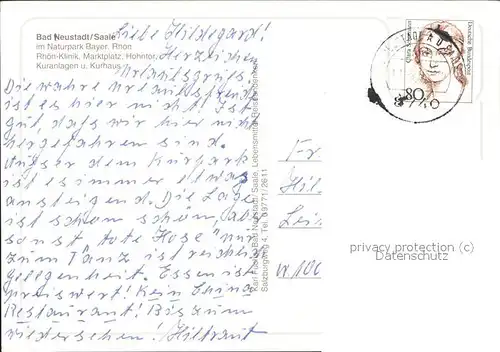 Bad Neustadt/Saale
im Naturpark Bayer. Rhön
Rhön-Klinik, Marktplatz, Hohntor,
Kuranlagen u. Kurhaus
Liebe Hildegard!
Herzlichen
Urlaubsgruß.
Die wahre Urlaubsfreude
ist es hier nicht! Ist
gut, daß wir hier nicht
hergefahren sind.
Außer dem Kurpark
ist es immer etwas
ansteigend. Die Lage
ist schon schön, aber
sonst "tote Hose" nur
zum Tanz ist reichlich
gelegenheit. Essen ist
preiswert! Kein China
Restaurant! Bis zum
wiedersehen! Hiltraut
Bad Neustadt/Saale, Lebensmittel
Salzburgweg 4, Tel. 09771/2611
Deutsche Bundespost
80
8740
Fr
Hil
Lei
W 100
privacy protection (c)
Datenschutz